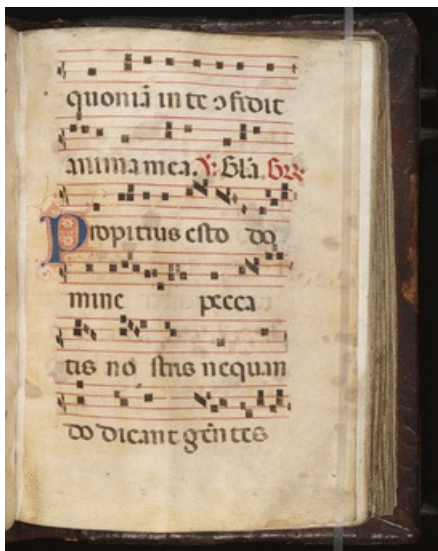 quoniā in te ɔfidit
anima mea. ℣: Gl̄a.
Propitius esto do
mine pecca
tis no stris nequan
do dicant gēntes